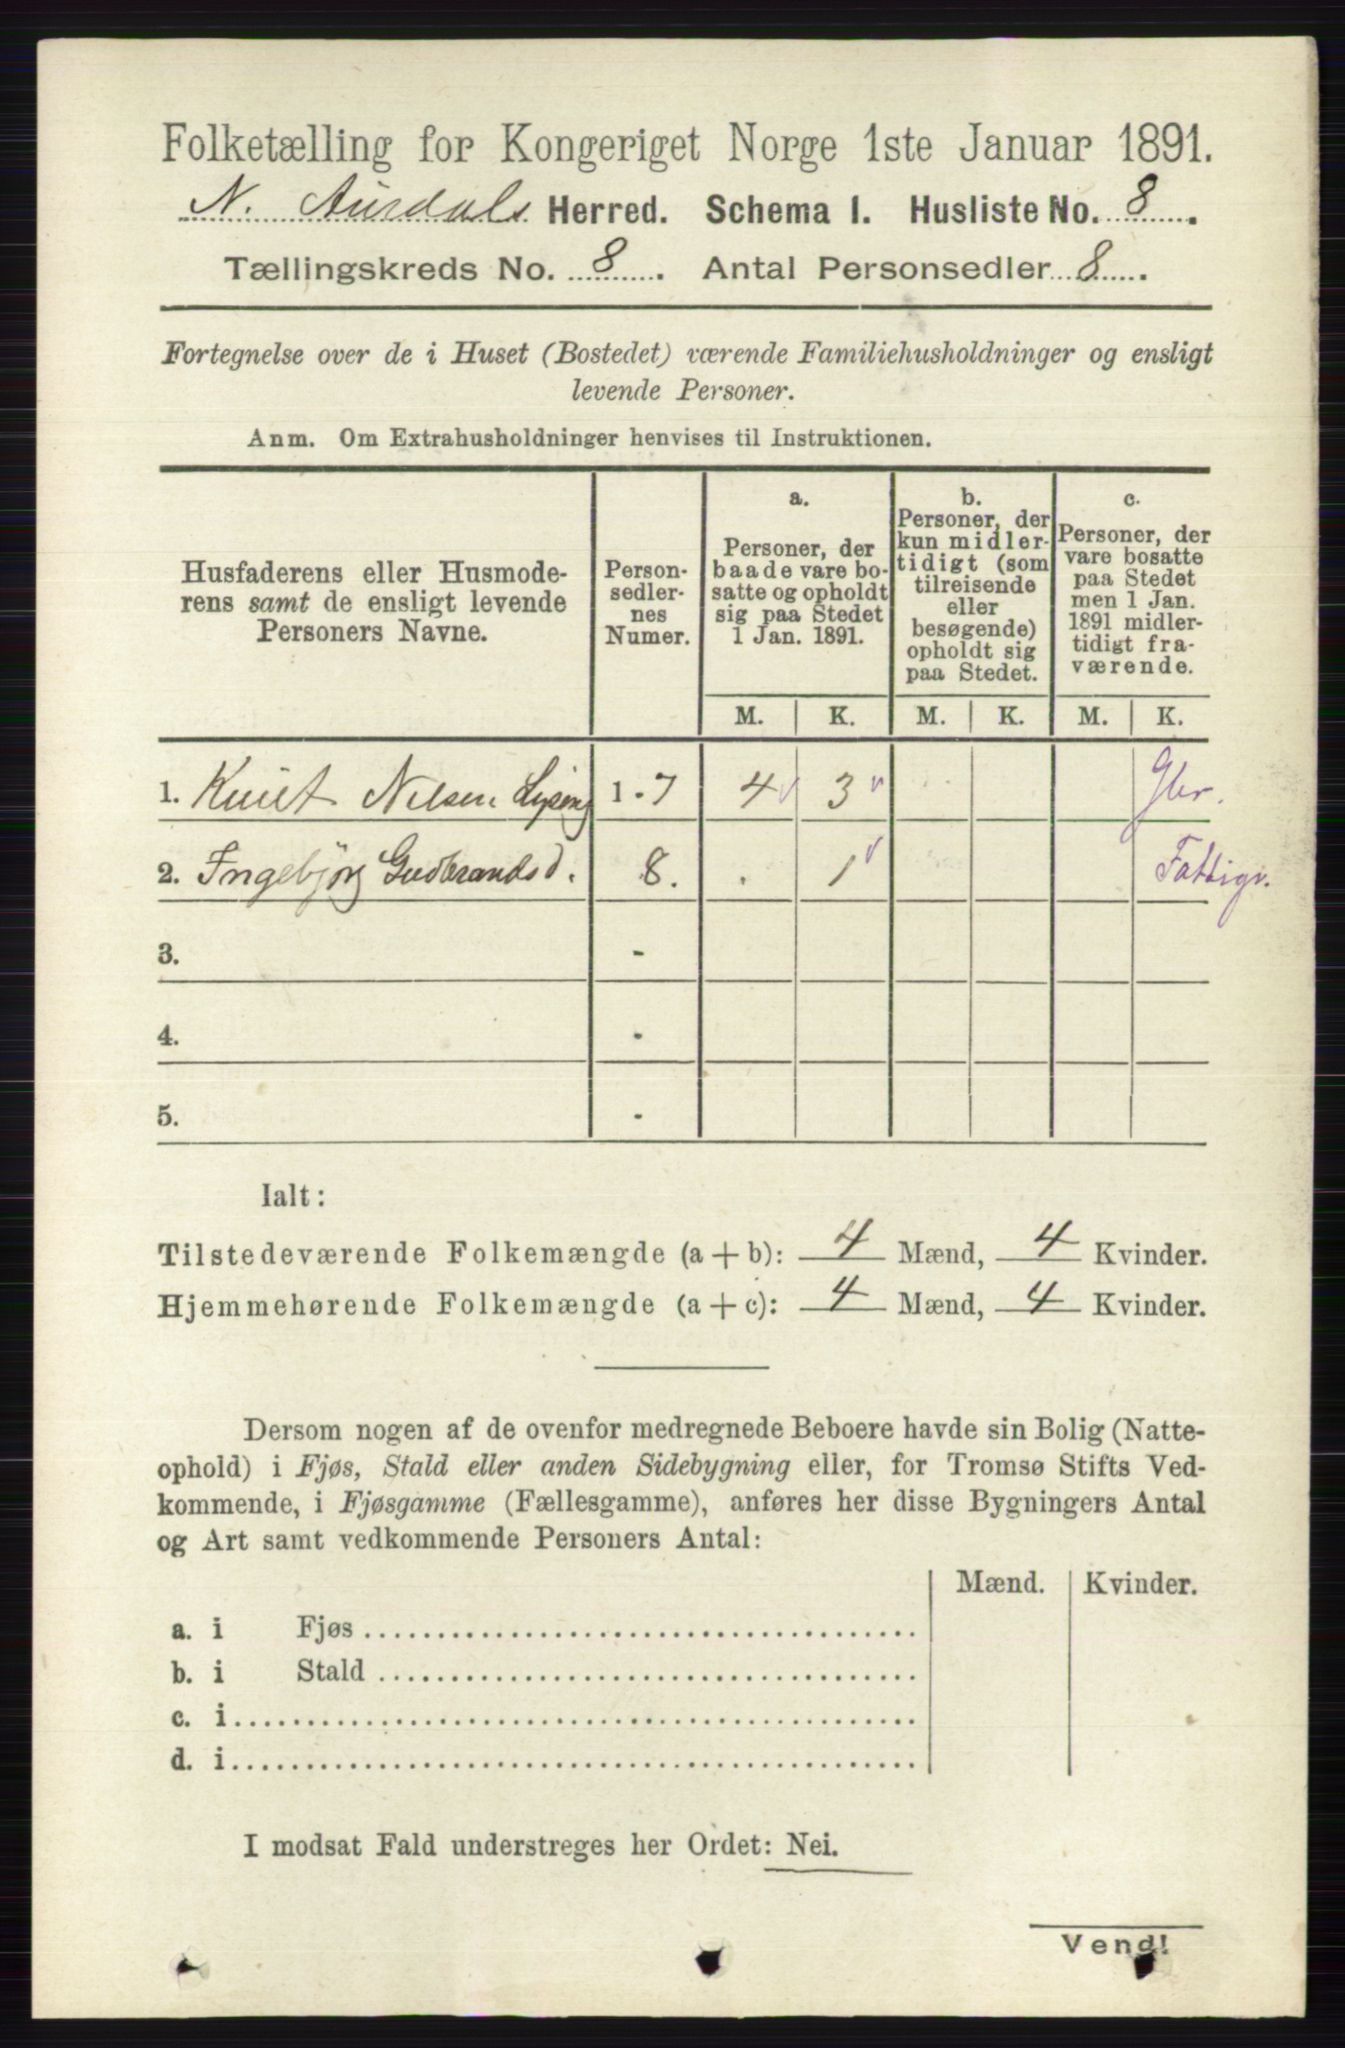 Folketælling for Kongeriget Norge 1ste Januar 1891.
N. Aurdals Herred. Schema I. Husliste No. 8.
Tællingskreds No. 8. Antal Personsedler 8.
Fortegnelse over de i Huset (Bostedet) værende Familiehusholdninger og ensligt
levende Personer.
Anm. Om Extrahusholdninger henvises til Instruktionen.
Husfaderens eller Husmode-
rens samt de ensligt levende
Personers Navne.
Person-
sedler-
nes
Numer.
a.
Personer, der
baade vare bo-
satte og opholdt
sig paa Stedet
1 Jan. 1891.
b.
Personer, der
kun midler-
tidigt (som
tilreisende
eller
besøgende)
opholdt sig
paa Stedet.
c.
Personer, der
vare bosatte
paa Stedet
men 1 Jan.
1891 midler-
tidigt fra-
værende.
M. K. M. K. M. K.
1. Knut Nilsen 1-7 4 3 Gbr.
2. Ingebjørg Gudbrandsd. 8. . 1 Fattigv.
3. -
4. -
5. -
Ialt:
Tilstedeværende Folkemængde (a + b): 4 Mænd, 4 Kvinder.
Hjemmehørende Folkemængde (a + c): 4 Mænd, 4 Kvinder.
Dersom nogen af de ovenfor medregnede Beboere havde sin Bolig (Natte-
ophold) i Fjøs, Stald eller anden Sidebygning eller, for Tromsø Stifts Ved-
kommende, i Fjøsgamme (Fællesgamme), anføres her disse Bygningers Antal
og Art samt vedkommende Personers Antal:
Mænd. Kvinder.
a. i Fjøs
b. i Stald
c. i
d. i
I modsat Fald understreges her Ordet: Nei.
Vend!